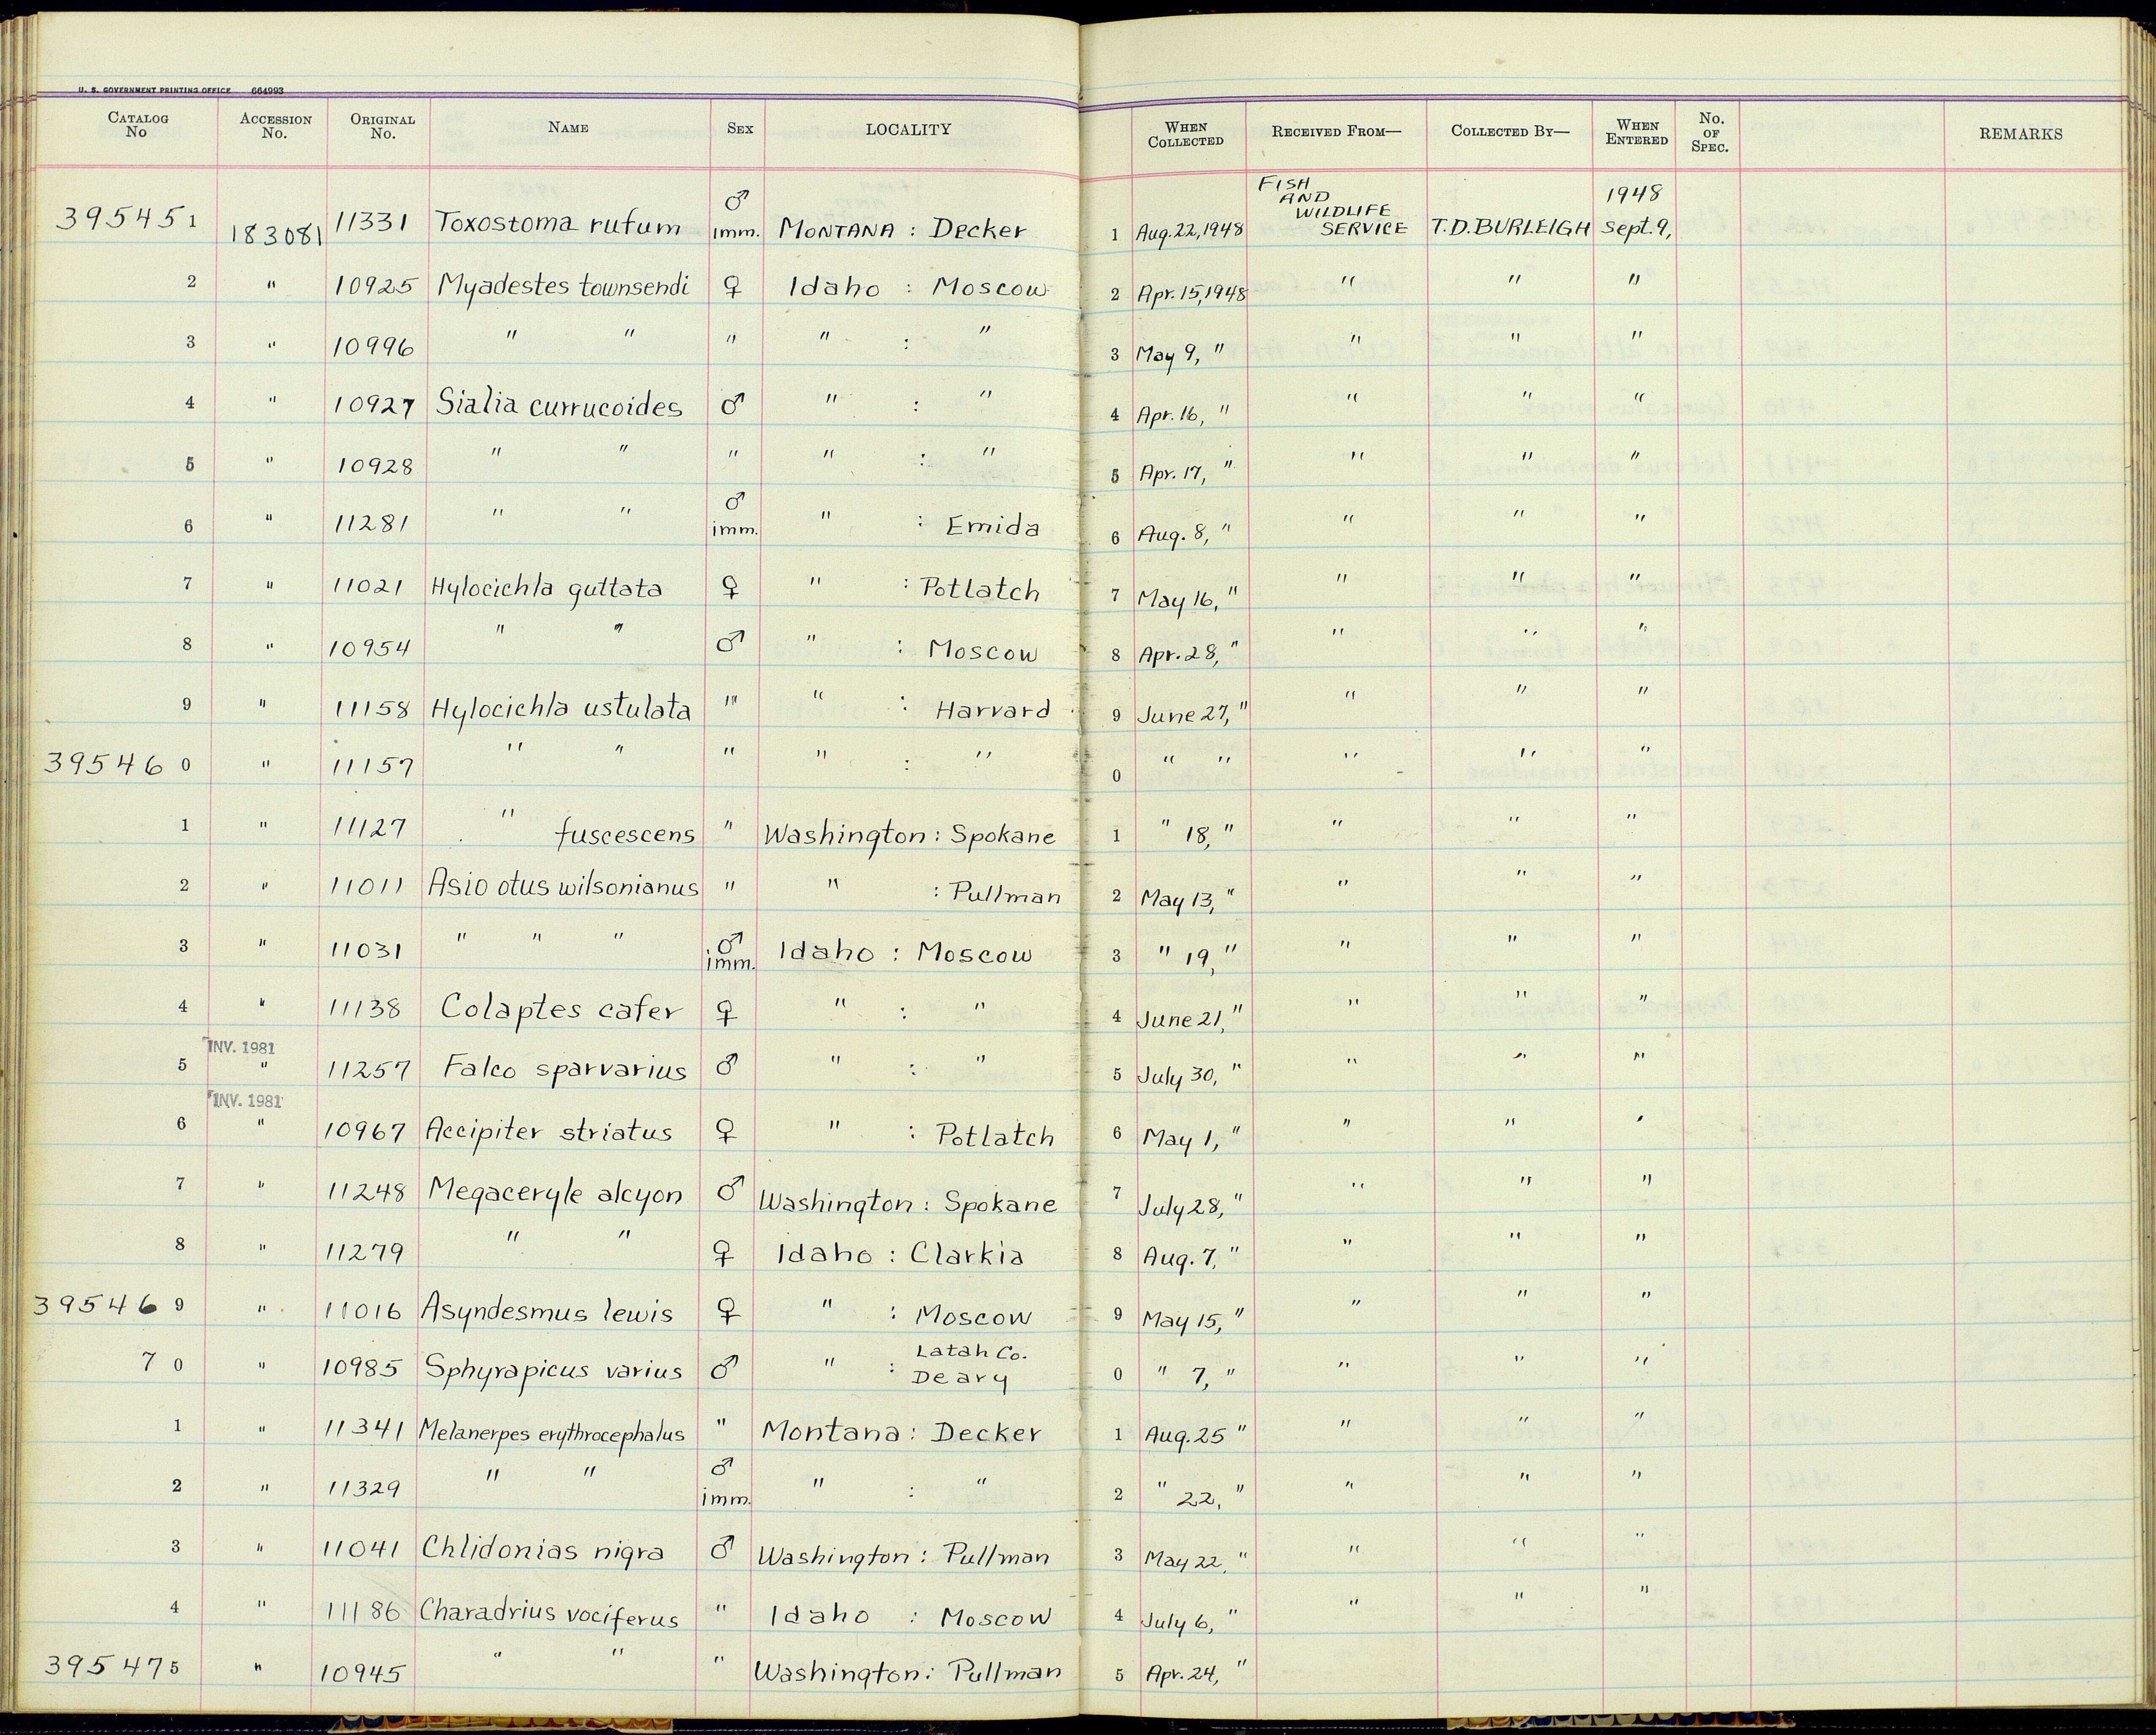 U. S. GOVERNMENT PRINTING OFFICE 664993
CATALOG No ACCESSION No. ORIGINAL No. NAME SEX LOCALITY WHEN COLLECTED RECEIVED FROM— COLLECTED BY— WHEN ENTERED No. OF SPEC. REMARKS
395451 183081 11331 Toxostoma rufum ♂ imm. MONTANA : Decker 1 Aug. 22, 1948 FISH AND WILDLIFE SERVICE T.D. BURLEIGH 1948 Sept. 9,
2 " 10925 Myadestes townsendi ♀ Idaho : Moscow 2 Apr. 15, 1948 " " "
3 " 10996 " " " " : " 3 May 9, " " " "
4 " 10927 Sialia currucoides ♂ " : " 4 Apr. 16, " " " "
5 " 10928 " " " " : " 5 Apr. 17, " " " "
6 " 11281 " " ♂ imm. " : Emida 6 Aug. 8, " " " "
7 " 11021 Hylocichla guttata ♀ " : Potlatch 7 May 16, " " " "
8 " 10954 " " ♂ " : Moscow 8 Apr. 28, " " " "
9 " 11158 Hylocichla ustulata " " : Harvard 9 June 27, " " " "
395460 " 11157 " " " " : " 0 " " " " "
1 " 11127 " fuscescens " Washington : Spokane 1 " 18, " " " "
2 " 11011 Asio otus wilsonianus " " : Pullman 2 May 13, " " " "
3 " 11031 " " " ♂ imm. Idaho : Moscow 3 " 19, " " " "
4 " 11138 Colaptes cafer ♀ " : " 4 June 21, " " " "
INV. 1981
5 " 11257 Falco sparvarius ♂ " : " 5 July 30, " " " "
INV. 1981
6 " 10967 Accipiter striatus ♀ " : Potlatch 6 May 1, " " " "
7 " 11248 Megaceryle alcyon ♂ Washington : Spokane 7 July 28, " " " "
8 " 11279 " " ♀ Idaho : Clarkia 8 Aug. 7, " " " "
395469 " 11016 Asyndesmus lewis ♀ " : Moscow 9 May 15, " " " "
70 " 10985 Sphyrapicus varius ♂ " : Latah Co. Deary 0 " 7, " " " "
1 " 11341 Melanerpes erythrocephalus " Montana : Decker 1 Aug. 25 " " " "
2 " 11329 " " ♂ imm. " : " 2 " 22, " " " "
3 " 11041 Chlidonias nigra ♂ Washington : Pullman 3 May 22, " " " "
4 " 11186 Charadrius vociferus " Idaho : Moscow 4 July 6, " " " "
395475 " 10945 " " " Washington : Pullman 5 Apr. 24, "